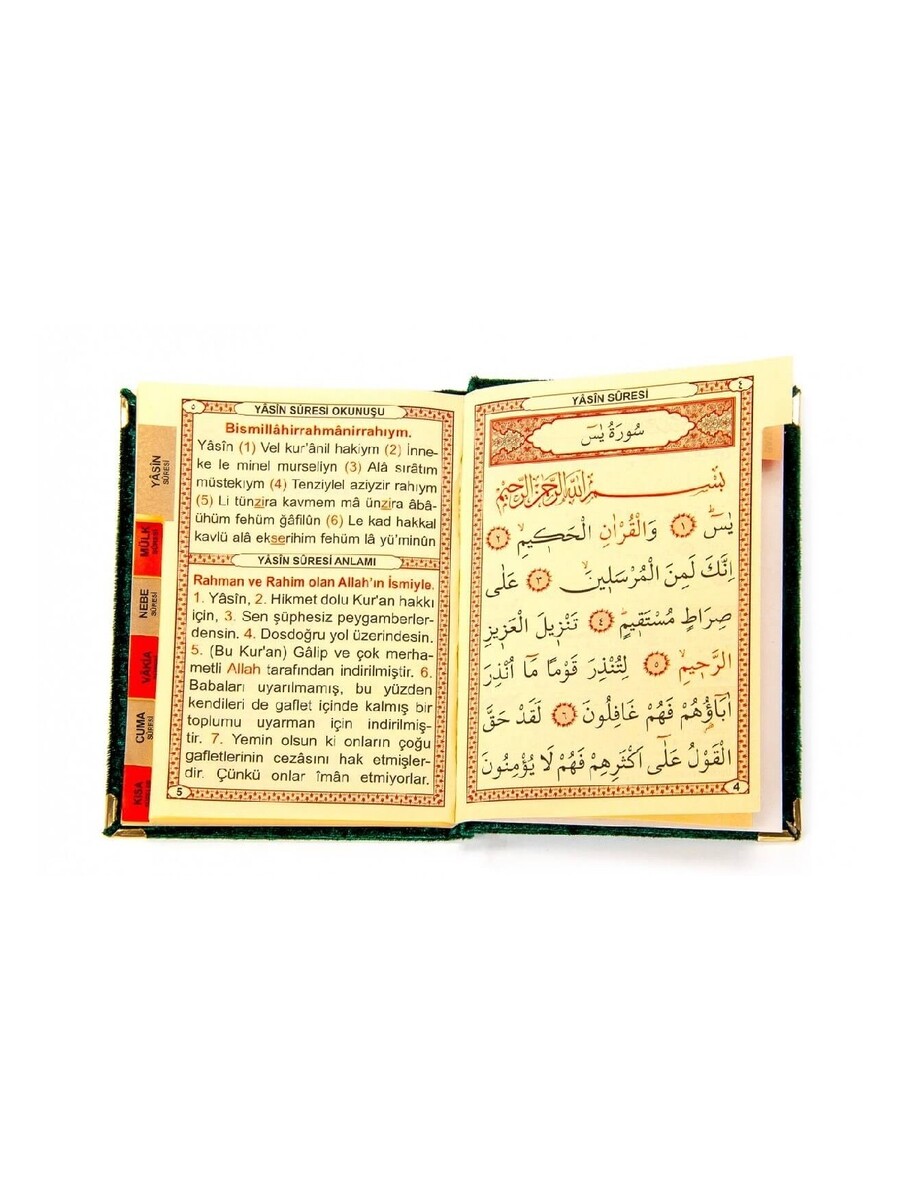 YÂSİN
SÛRESİ
MÜLK
SÛRESİ
NEBE
SÛRESİ
VÂKİA
CUMA
SÛRESİ
KISA
٥
YÂSİN SÛRESİ OKUNUŞU
Bismillâhirrahmânirrahıym.
Yâsîn (1) Vel kur'ânil hakiym (2) İnne-
ke le minel murseliyn (3) Alâ sırâtım
müstekıym (4) Tenziylel aziyzir rahıym
(5) Li tünzira kavmem mâ ünzira âbâ-
ühüm fehüm ğâfilûn (6) Le kad hakkal
kavlü alâ ekserihim fehüm lâ yü'minûn
YÂSİN SÛRESİ ANLAMI
Rahman ve Rahim olan Allah'ın İsmiyle.
1. Yâsîn, 2. Hikmet dolu Kur'an hakkı
için, 3. Sen şüphesiz peygamberler-
densin. 4. Dosdoğru yol üzerindesin.
5. (Bu Kur'an) Gâlip ve çok merha-
metli Allah tarafından indirilmiştir. 6.
Babaları uyarılmamış, bu yüzden
kendileri de gaflet içinde kalmış bir
toplumu uyarman için indirilmiş-
tir. 7. Yemin olsun ki onların çoğu
gafletlerinin cezâsını hak etmişler-
dir. Çünkü onlar îmân etmiyorlar.
5
YÂSİN SÛRESİ
٤
سُورَةُ يٰسٓ
بِسْمِ اللّٰهِ الرَّحْمٰنِ الرَّحِيمِ
يٰسٓ ۚ ﴿١﴾ وَالْقُرْاٰنِ الْحَكٖيمِۙ ﴿٢﴾
اِنَّكَ لَمِنَ الْمُرْسَلٖينَۙ ﴿٣﴾ عَلٰى
صِرَاطٍ مُسْتَقٖيمٍؕ ﴿٤﴾ تَنْزٖيلَ الْعَزٖيزِ
الرَّحٖيمِۙ ﴿٥﴾ لِتُنْذِرَ قَوْمًا مَٓا اُنْذِرَ
اٰبَٓاؤُ۬هُمْ فَهُمْ غَافِلُونَ ﴿٦﴾ لَقَدْ حَقَّ
الْقَوْلُ عَلٰٓى اَكْثَرِهِمْ فَهُمْ لَا يُؤْمِنُونَ
4